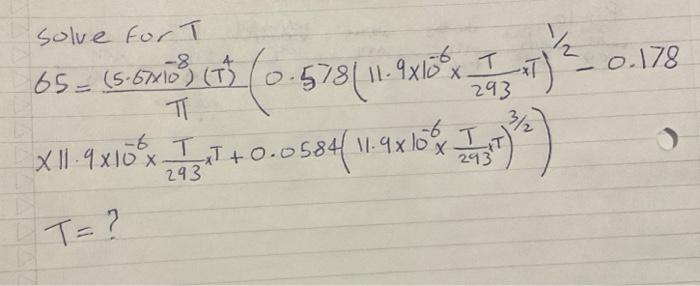 Solve For T
65 = (5.67x10⁻⁸)(T⁴)/π (0.578(11.9x10⁻⁶ x T/293 xT)^1/2 - 0.178
x11.9x10⁻⁶ x T/293 xT + 0.0584(11.9x10⁻⁶ x T/293 xT)^3/2)
T = ?